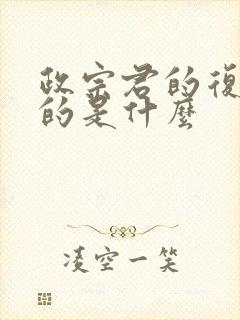 政宗君的復
的是什麼
凌空一笑